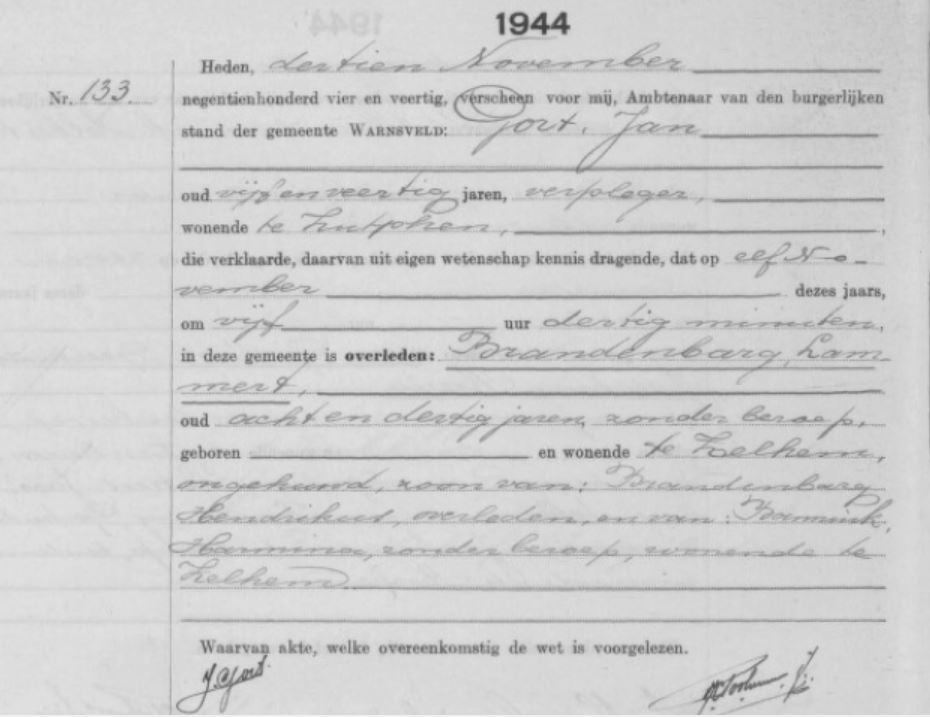 1944
Heden, dertien November
Nr. 133 negentienhonderd vier en veertig, verscheen voor mij, Ambtenaar van den burgerlijken
stand der gemeente WARNSVELD: Gort, Jan
oud vijf en veertig jaren, verpleger,
wonende te Zutphen,
die verklaarde, daarvan uit eigen wetenschap kennis dragende, dat op elf No-
vember dezes jaars,
om vijf uur dertig minuten,
in deze gemeente is overleden: Brandenbarg, Lam-
mert,
oud acht en dertig jaren, zonder beroep,
geboren en wonende te Zelhem,
ongehuwd, zoon van: Brandenbarg
Hendrikus, overleden, en van:
Harmina, zonder beroep, wonende te
Zelhem.
Waarvan akte, welke overeenkomstig de wet is voorgelezen.
J Gort.